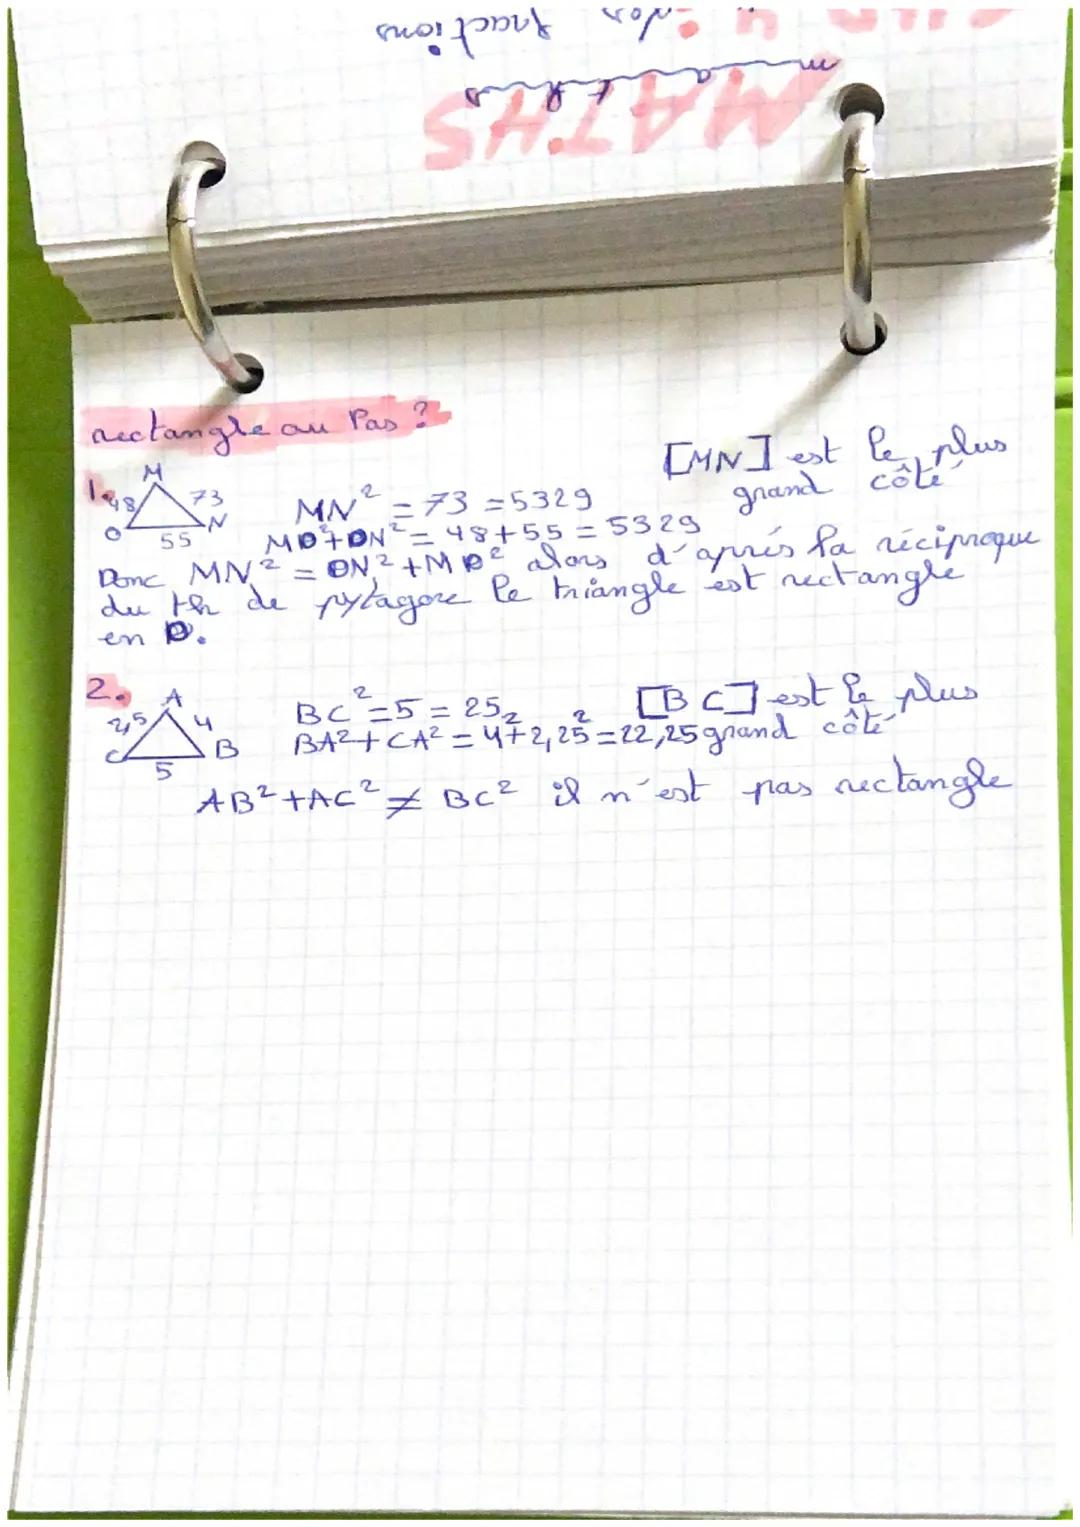 des fractions
maths
MATHS
rectangle ou Pas ?
1. M 48 73 O 55 N
[MN] est le plus grand côté
MN² = 73 = 5329
MO²+ON² = 48+55 = 5329
Donc MN² = ON²+MO² alors d'après la réciproque
du th de pytagore le triangle est rectangle
en O.
2. A 2,5 4 C 5 B
[BC] est le plus grand côté
BC² = 5 = 25
BA²+CA² = 4²+2,25² = 22,25
AB²+AC² ≠ BC² il n'est pas rectangle